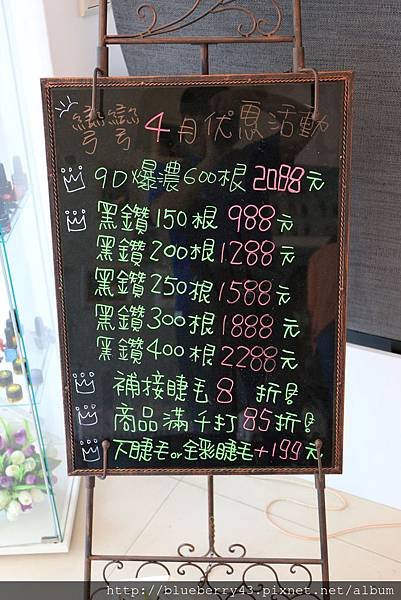 彎彎4月优惠活動
9D爆濃600根2088元
黑鑽150根988元
黑鑽200根1288元
黑鑽250根1588元
黑鑽300根1888元
黑鑽400根2288元
補接睫毛8折!
商品滿千打85折!
下睫毛or全彩睫毛+199元
http://blueberry43.pixnet.net/album